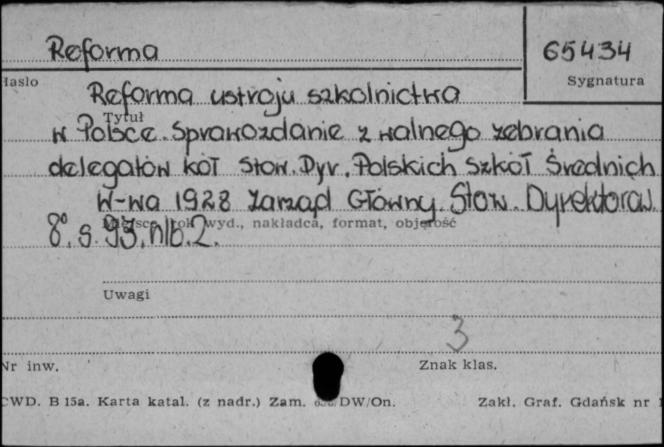 Reforma 65434
Hasło Sygnatura
Reforma ustroju szkolnictwa
Tytuł
w Polsce. Sprawozdanie z walnego zebrania
delegatów kół Stow. Dyr. Polskich Szkół Średnich
W-wa 1928 Zarząd Główny. Stow. Dyrektorów.
Miejsce, rok wyd., nakładca, format, objętość
8°. s. 93, nlb. 2.
Uwagi
3
Nr inw. Znak klas.
CWD. B 15a. Karta katal. (z nadr.) Zam. DW/On. Zakł. Graf. Gdańsk nr 1